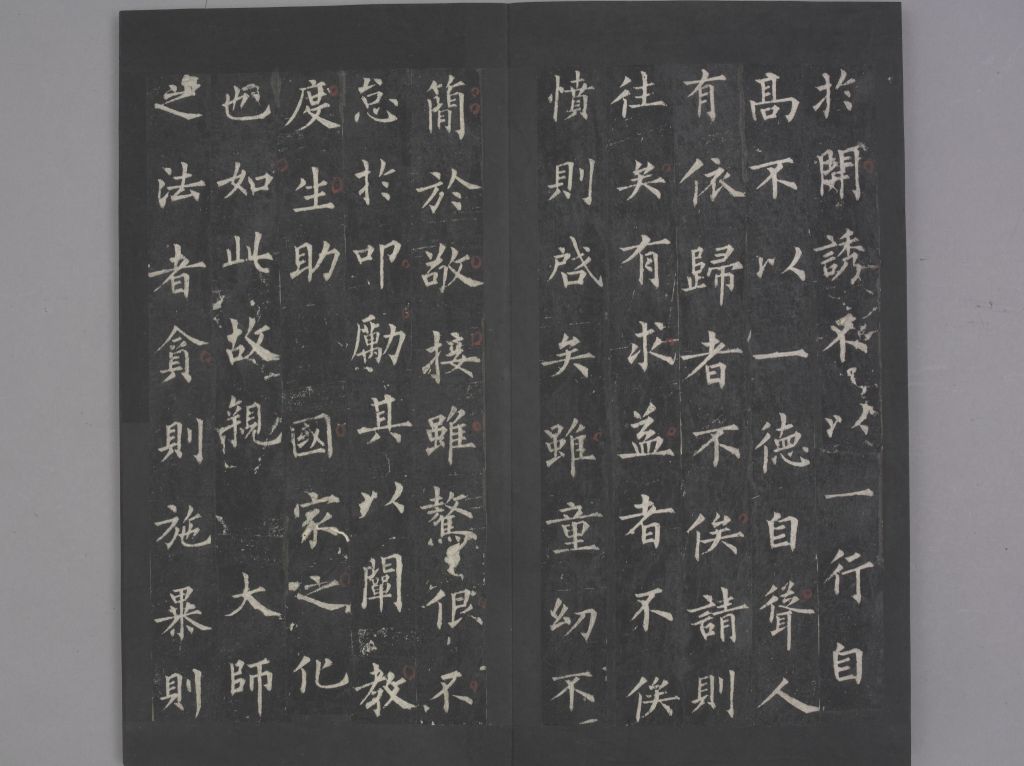 於開誘不以一行自
髙不以一德自聳人
有依歸者不俟請則
往矣有求益者不俟
憤則啓矣雖童幼不
簡於敬接雖驁佷不
怠於叩勵其以闡教
度生助 國家之化
也如此故親 大師
之法者貪則施暴則